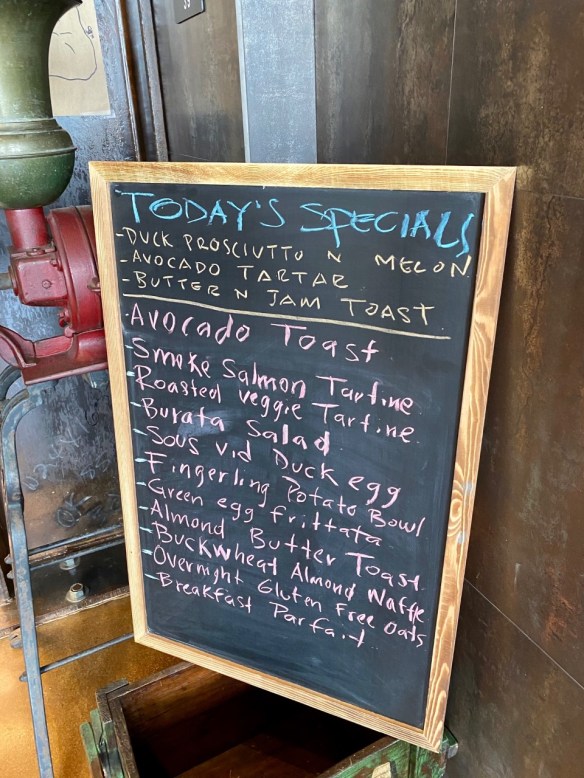 TODAY'S SPECIALS
-DUCK PROSCIUTTO N MELON
-AVOCADO TARTAR
-BUTTER N JAM TOAST
-Avocado Toast
-Smoke Salmon Tartine
-Roasted veggie Tartine
-Burata Salad
-Sous vid Duck egg
-Fingerling Potato Bowl
-Green egg frittata
-Almond Butter Toast
-Buckwheat Almond Waffle
-Overnight Gluten Free Oats
-Breakfast Parfait